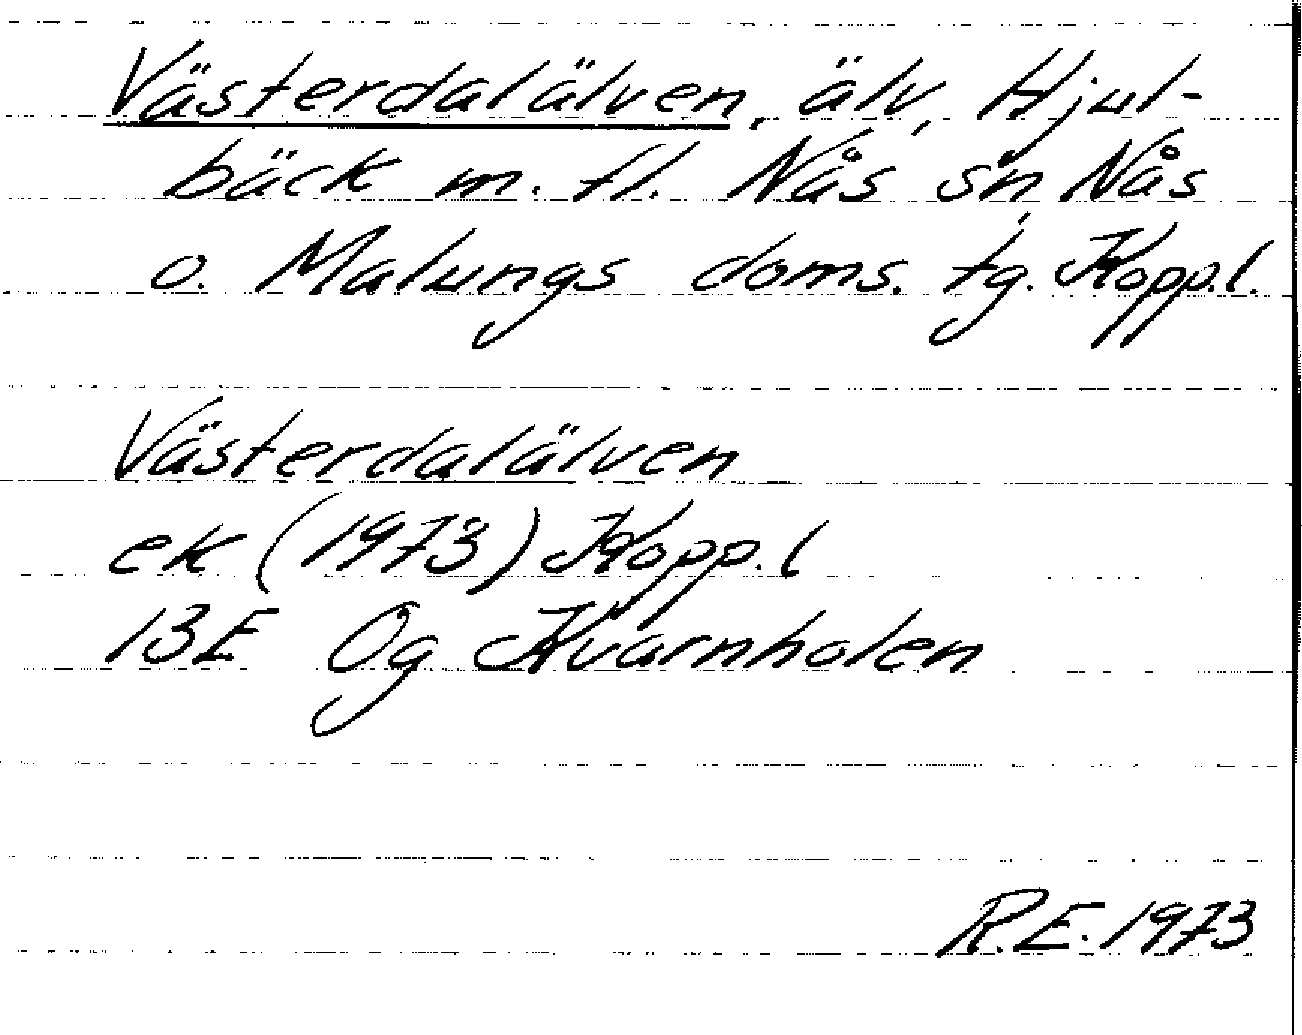 Västerdalälven, älv, Hjul-
bäck m. fl. Nås sn, Nås
o. Malungs doms. tg. Kopp.l.
Västerdalälven
ek (1973) Kopp.l
13E 0g Kvarnholen
R.E. 1973